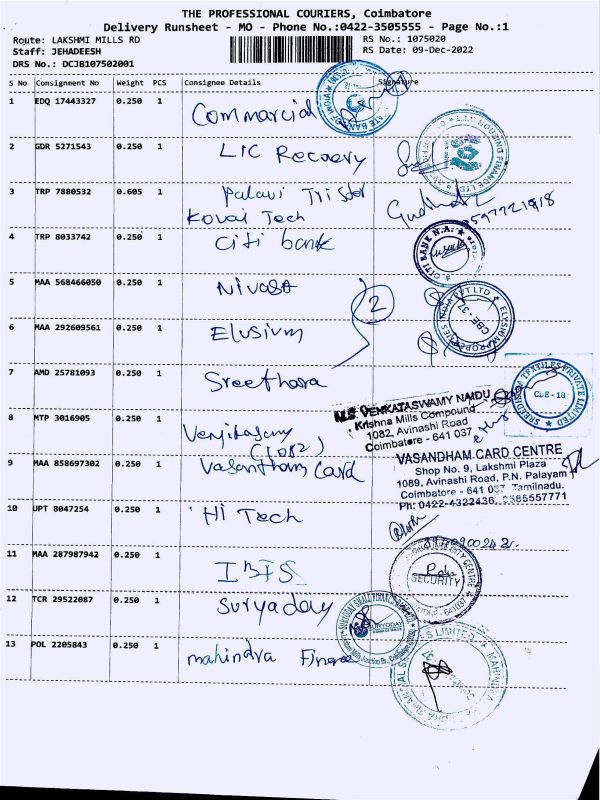 THE PROFESSIONAL COURIERS, Coimbatore
Delivery Runsheet - MO - Phone No.:0422-3505555 - Page No.:1
Route: LAKSHMI MILLS RD RS No.: 1075020
Staff: JEHADEESH RS Date: 09-Dec-2022
DRS No.: DCJB107502001
S No Consignment No Weight PCS Consignee Details Signature
1 EDQ 17443327 0.250 1 Commercial
2 GDR 5271543 0.250 1 LIC Recovery
3 TRP 7880532 0.605 1
Kovai Tech
4 TRP 8033742 0.250 1 Citi bank
CITI BANK N.A.
5 MAA 568466050 0.250 1 Nivasa
2
6 MAA 292609561 0.250 1 Elusium
CBE-37
7 AMD 25781093 0.250 1 Sreethara
CBE-18
M/S. VENKATASWAMY NAIDU
Krishna Mills Compound
1082, Avinashi Road
Coimbatore - 641 037
8 MTP 3016905 0.250 1
(1082)
9 MAA 858697302 0.250 1 Vasantham Card
VASANDHAM CARD CENTRE
Shop No. 9, Lakshmi Plaza
1089, Avinashi Road, P.N. Palayam
Coimbatore - 641 037. Tamilnadu.
Ph: 0422-4322436, 9585557771
10 UPT 8047254 0.250 1 Hi Tech
11 MAA 287987942 0.250 1 IBIS
SECURITY
12 TCR 29522087 0.250 1 Suryaday
SURYODAY
13 POL 2205843 0.250 1 mahindra Finance